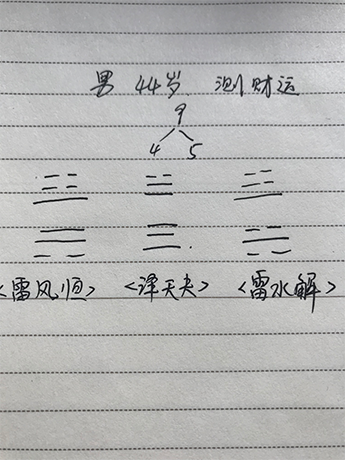 男 44岁 测财运
9
4 5
<雷风恒> <泽天夬> <雷水解>